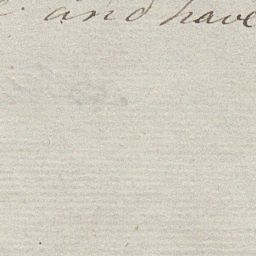 and have